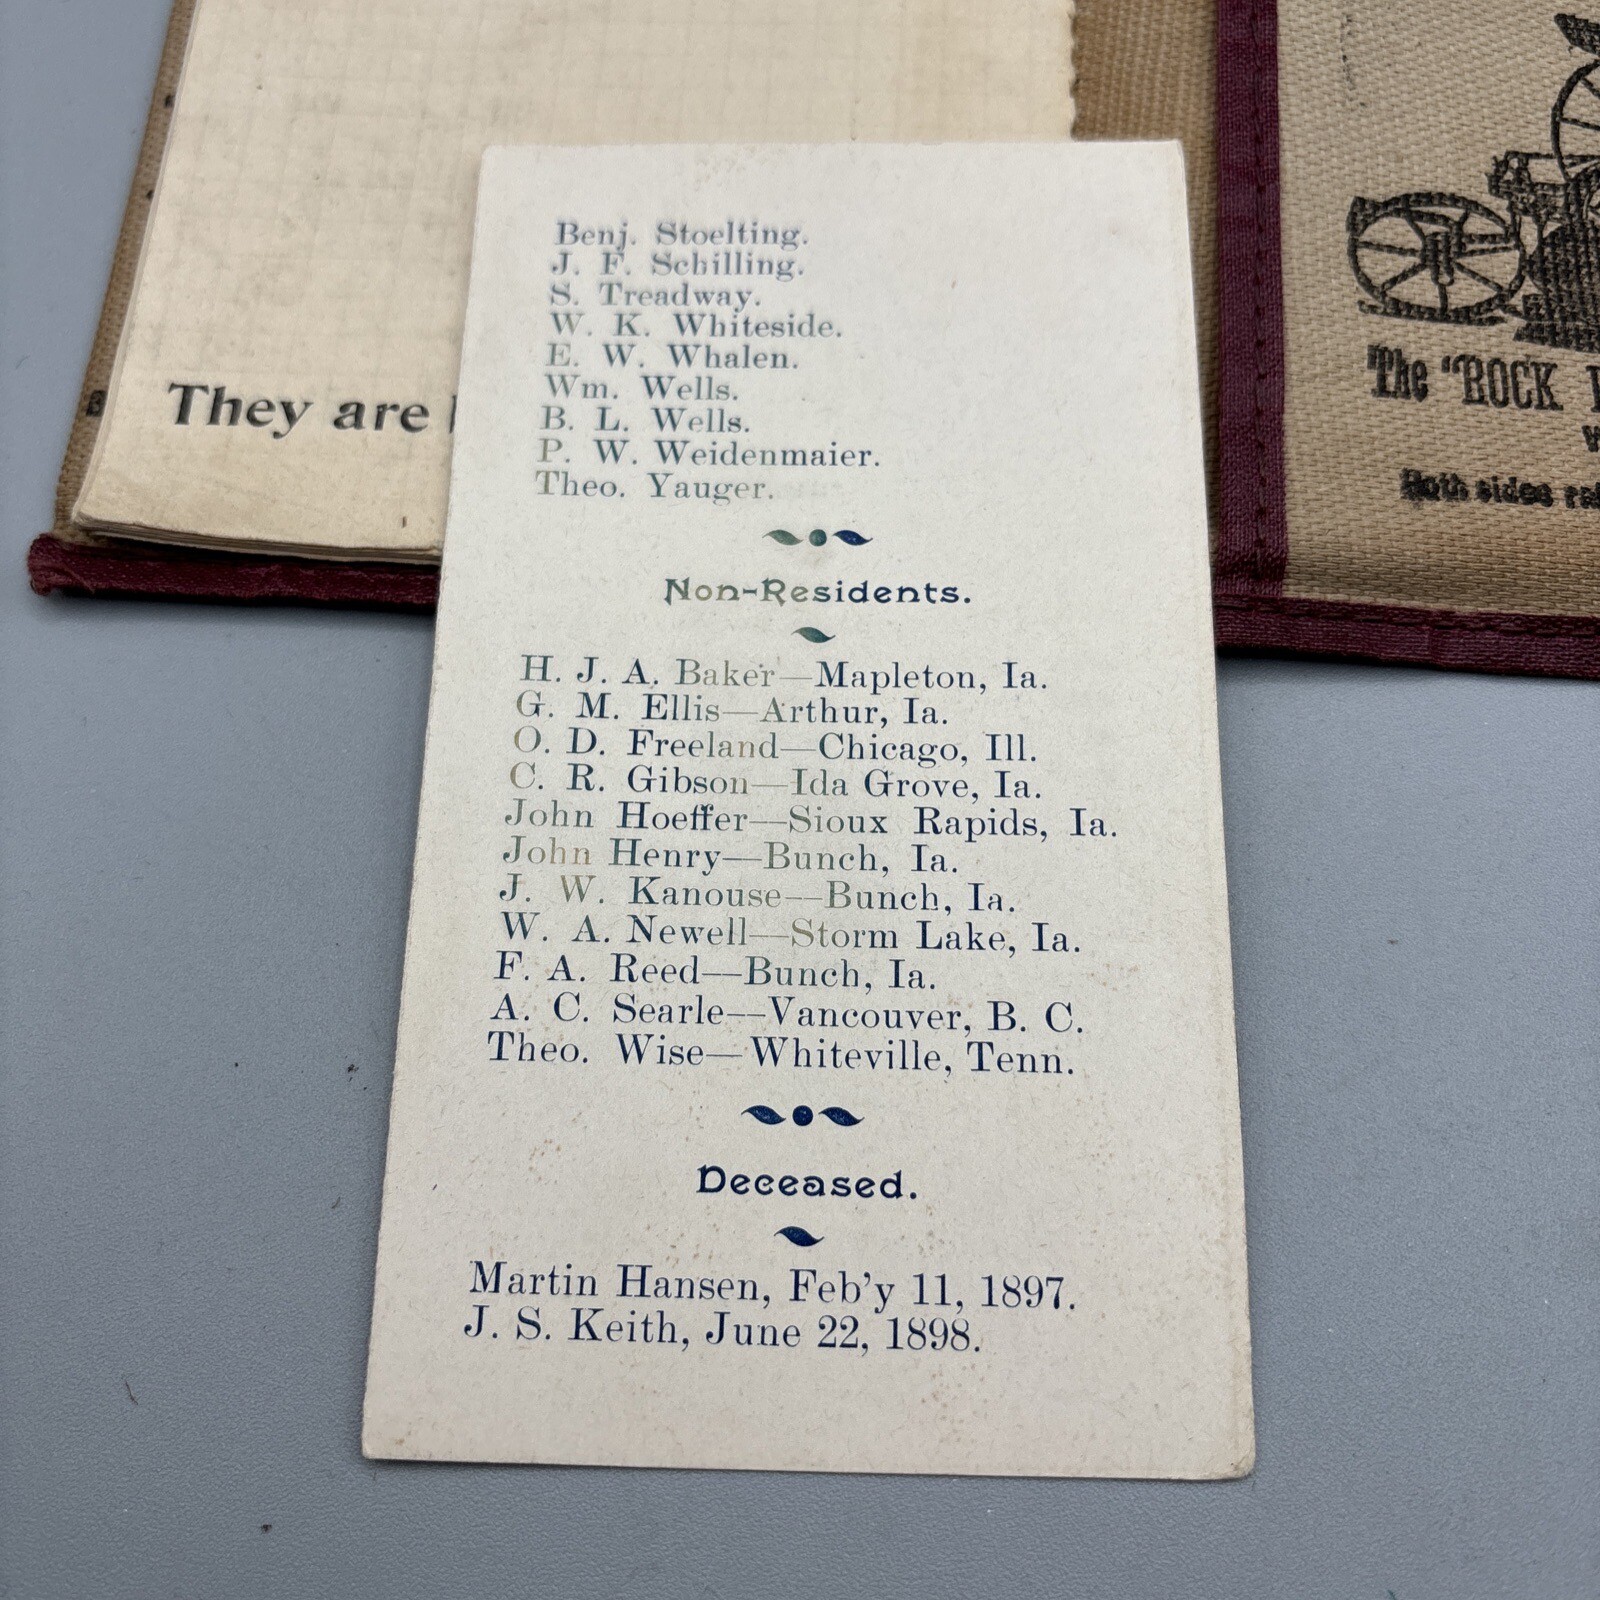 Benj. Stoelting.
J. F. Schilling.
S. Treadway.
W. K. Whiteside.
E. W. Whalen.
Wm. Wells.
B. L. Wells.
P. W. Weidenmaier.
Theo. Yauger.
Non-Residents.
H. J. A. Baker—Mapleton, Ia.
G. M. Ellis—Arthur, Ia.
O. D. Freeland—Chicago, Ill.
C. R. Gibson—Ida Grove, Ia.
John Hoeffer—Sioux Rapids, Ia.
John Henry—Bunch, Ia.
J. W. Kanouse—Bunch, Ia.
W. A. Newell—Storm Lake, Ia.
F. A. Reed—Bunch, Ia.
A. C. Searle—Vancouver, B. C.
Theo. Wise—Whiteville, Tenn.
Deceased.
Martin Hansen, Feb'y 11, 1897.
J. S. Keith, June 22, 1898.
They are
The "ROCK
Both sides